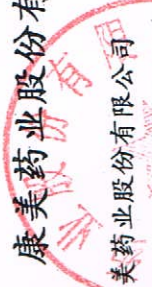 康美药业股份有
美药业股份有限公司